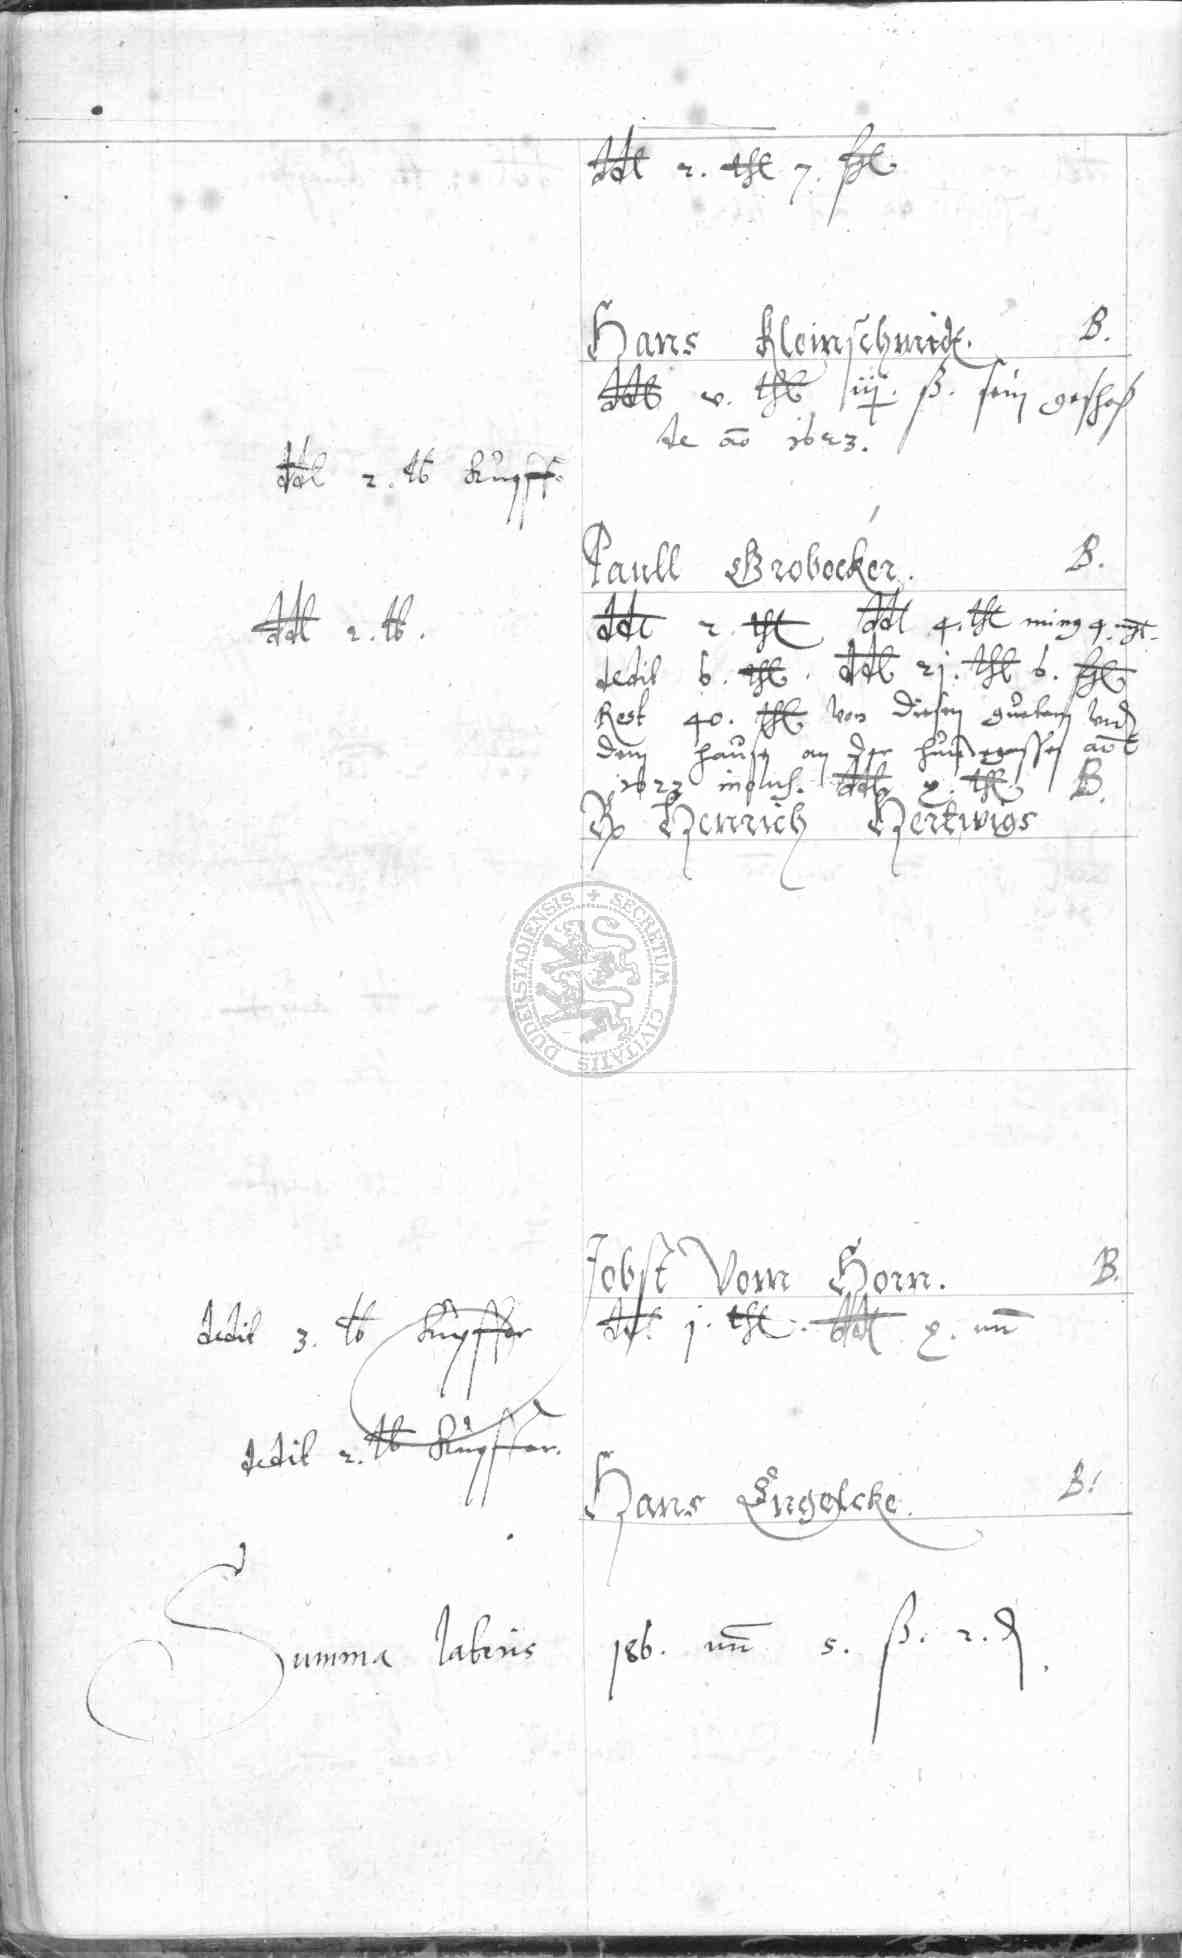 ddt 2. thl 7. ßl
Hans Kleinschmidt. B.
ddt v. thl iiij. ß. sein geschoß
de ao 1623.
ddt 2. lb Kupff.
Paull Grobecker. B.
ddt 2. lb.
ddt 2. thl ddt 4. thl ming 4. gl.
dedit 6. thl. ddt 21. thl 6. ßl
Rest 40. thl von diesen guetern und
dem hause an der
1623 inclus. ddt x. thl B.
Henrich Hertwigs
DUDERSTADIENSIS + SECRETUM CIVITATIS
Jobst Vom Horn. B.
dedit 3. lb Kupffer
ddt. j. thl. ddt x. mr
dedit 2. lb Kupffer.
Hans Engelcke. B.
Summa lateris 186. mr 5. ß. 2. d.